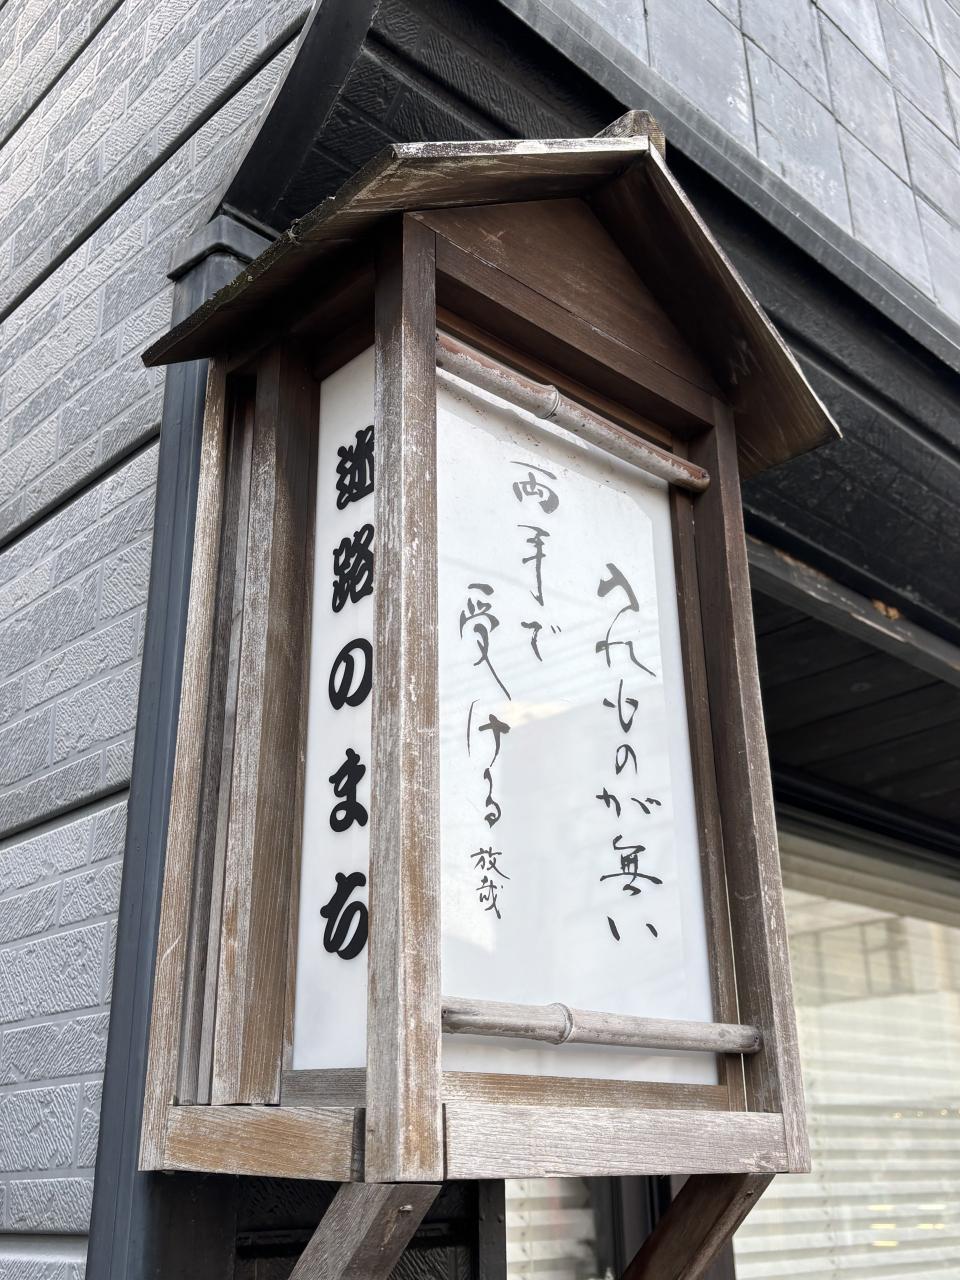 迷路のまち
入れものが無い
両手で
受ける 放哉